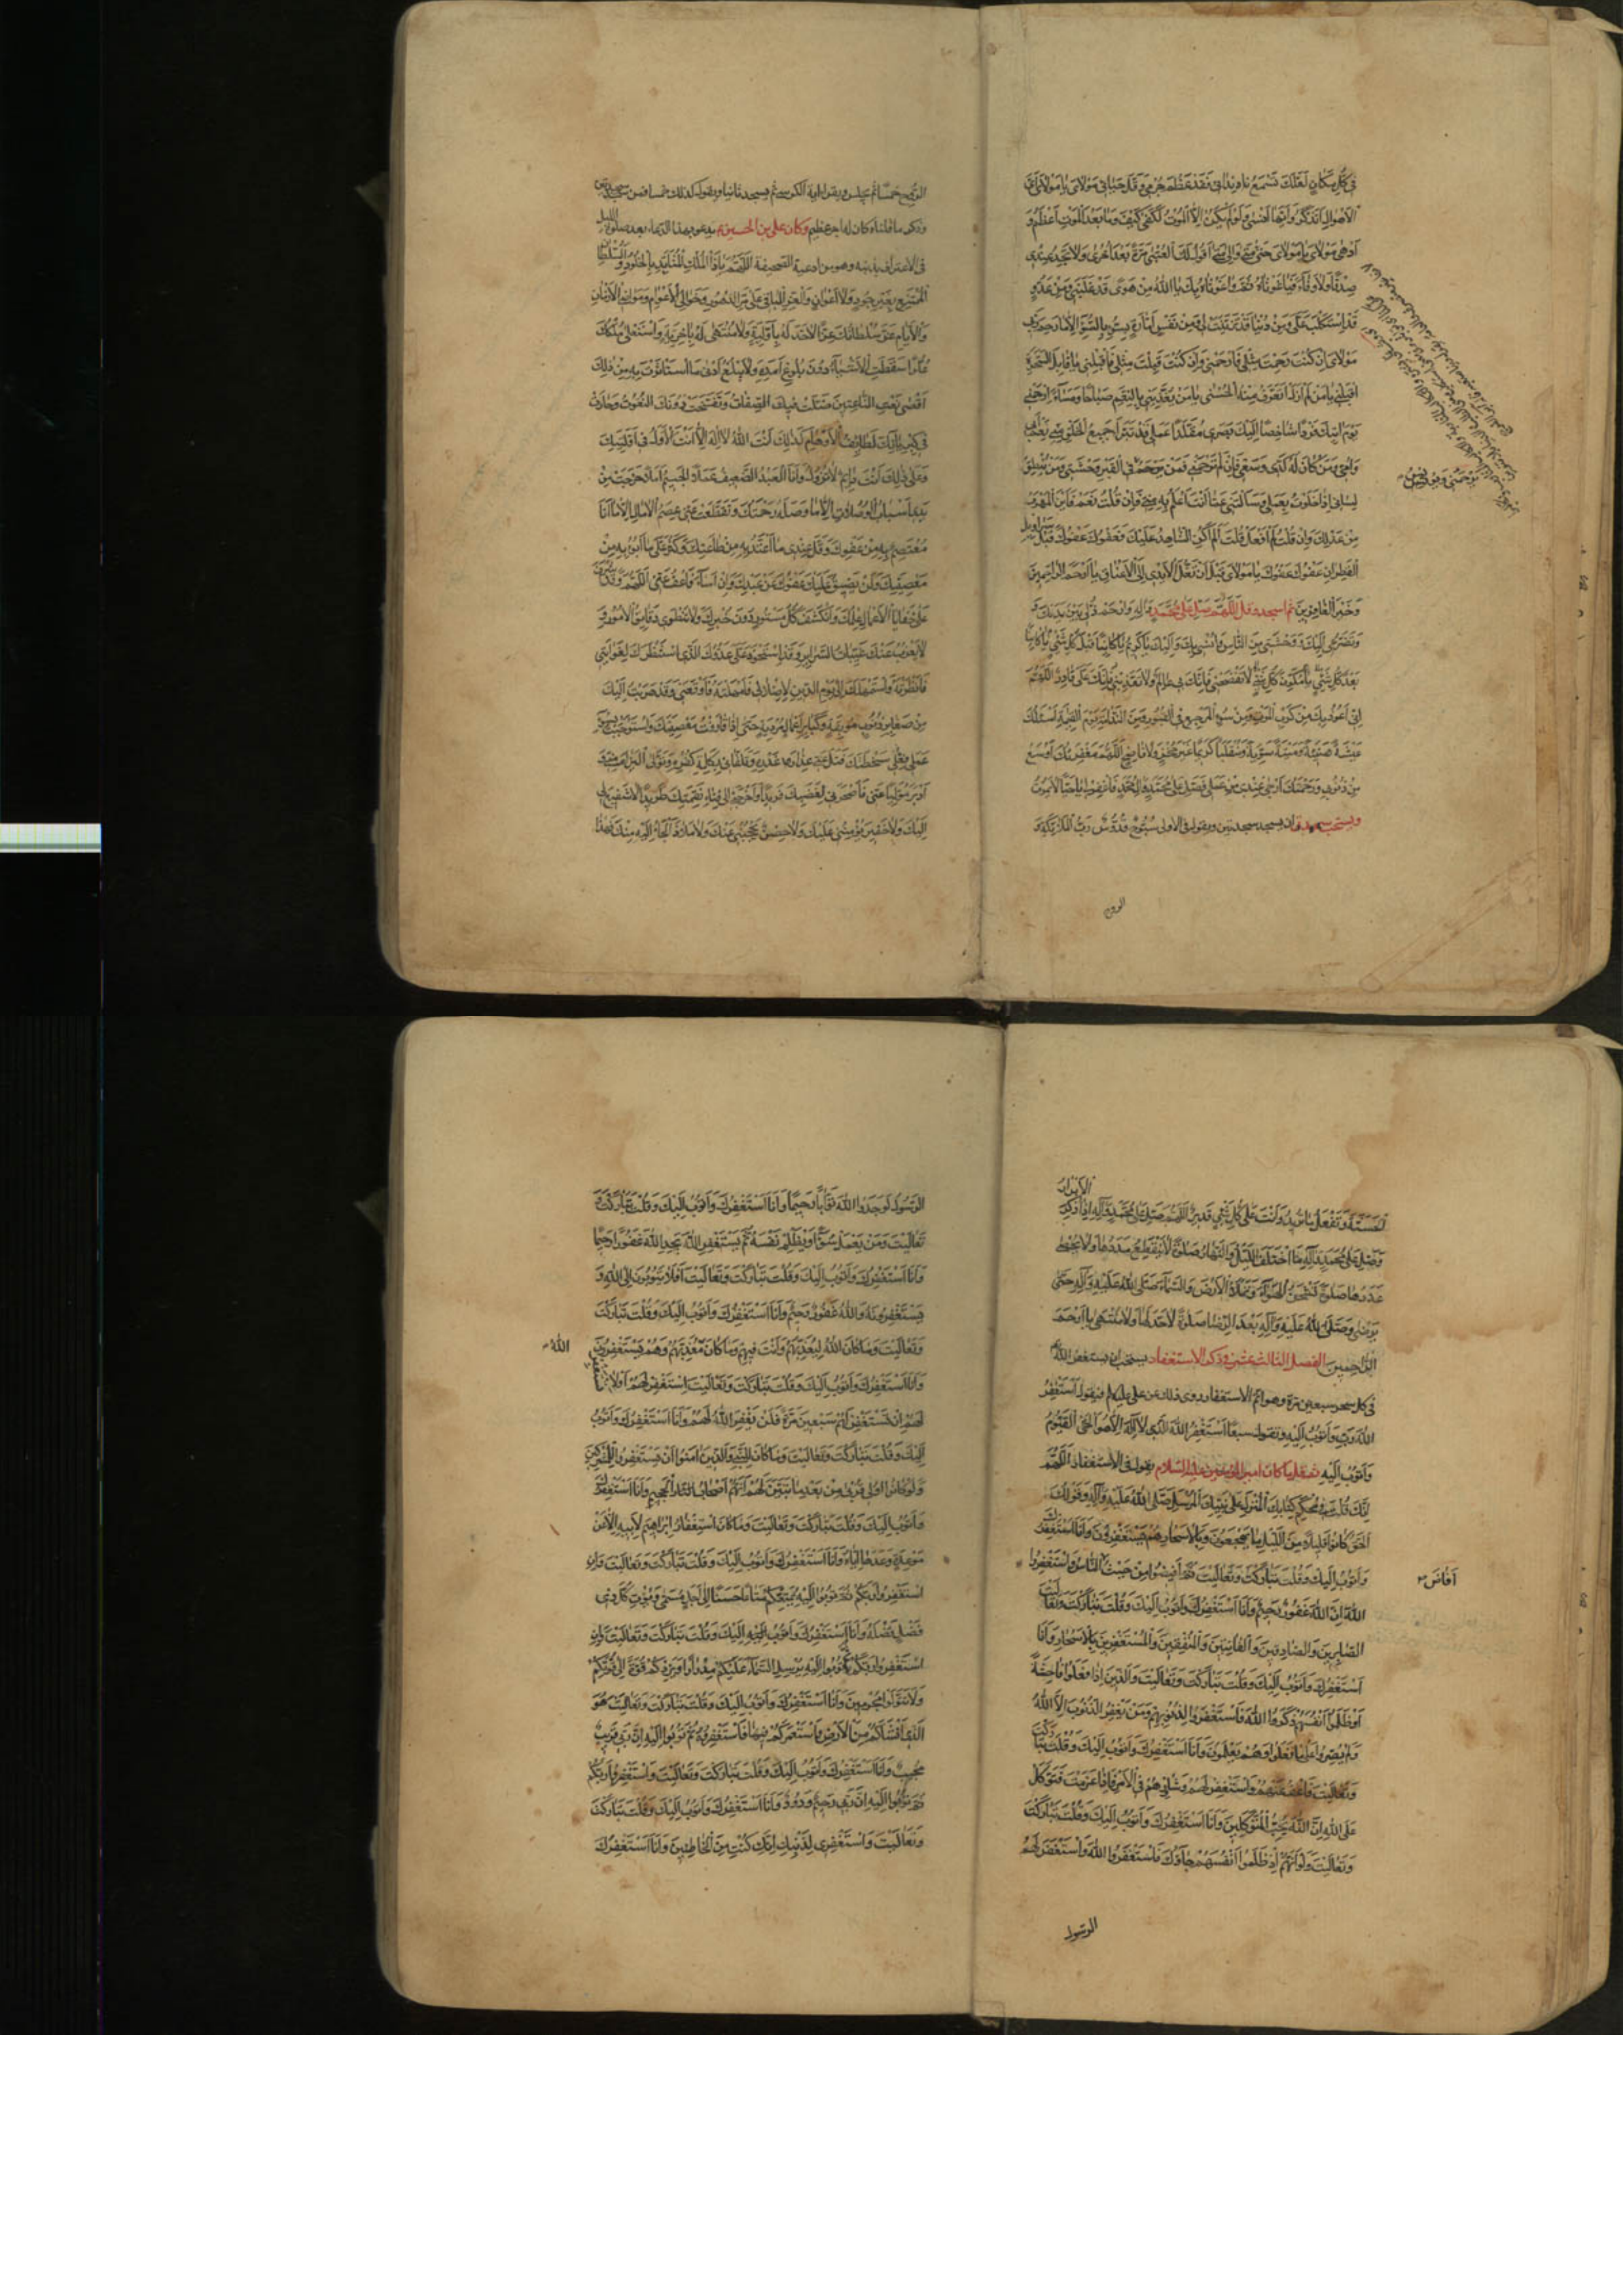 في كل مكان لعلك تسمع ندائي فقد عظم جرمي وقل حيائي مولاي يا مولاي اي
الاهوال اتذكر وايها انسى ولو لم يكن الا الموت لكفى كيف وما بعد الموت اعظم و
ادهى مولاي يا مولاي حتى متى والى متى اقول لك العتبى مرة بعد اخرى ولا تجد عندي
صدقا ولا وفاء فيا غوثاه ثم واغوثاه بك يا الله من هوى قد غلبني ومن عدو
قد استكلب علي ومن دنيا قد تزينت لي ومن نفس امارة بالسوء الا ما رحم ربي
مولاي ان كنت رحمت مثلي فارحمني وان كنت قبلت مثلي فاقبلني يا قابل السحرة
اقبلني يا من لم ازل اتعرف منه الحسنى يا من يغذيني بالنعم صباحا ومساء ارحمني
يوم اتيك فردا شاخصا اليك بصري مقلدا عملي قد تبرا جميع الخلق مني نعم ابي
وامي ومن كان له كدي وسعيي فان لم ترحمني فمن يرحم في القبر وحشتي ومن ينطق
لساني اذا خلوت بعملي وسالتني عما انت اعلم به مني فان قلت نعم فاين المهرب
من عدلك وان قلت لم افعل قلت الم اكن الشاهد عليك فعفوك عفوك قبل سرابيل
القطران عفوك عفوك يا مولاي قبل ان تغل الايدي الى الاعناق يا ارحم الراحمين
وخير الغافرين ثم اسجد وقل اللهم صل على محمد واله وارحم ذلي بين يديك و
وتضرعي اليك ووحشتي من الناس وانسي بك واليك يا كريم يا كائنا قبل كل شيء يا كائنا
بعد كل شيء يا مكون كل شيء لا تفضحني فانك بي عالم ولا تعذبني فانك علي قادر اللهم
اني اعوذ بك من كرب الموت ومن سوء المرجع في القبور ومن الندامة يوم القيمة اسئلك
عيشة هنيئة وميتة سوية ومنقلبا كريما غير مخز ولا فاضح اللهم مغفرتك اوسع
من ذنوبي ورحمتك ارجى عندي من عملي فصل على محمد وال محمد واغفر لي يا حيا لا يموت
ويستحب ان يسجد سجدتين ويقول في الاولى سبوح قدوس رب الملائكة و
الروح
الروح خمسا ثم يجلس ويقرا اية الكرسي ثم يسجد ثانيا ويقول كذلك خمسا
وذكر ما قلناه كان له اجر عظيم وكان علي بن الحسين ع يدعو بهذا الدعاء بعد صلوة الليل
في الاعتراف بذنبه وهو من ادعية الصحيفة اللهم يا ذا الملك المتابد بالخلود والسلطان
الممتنع بغير جنود ولا اعوان والعز الباقي على مر الدهور وخوالي الاعوام ومواضي الازمان
والايام عز سلطانك عزا لا حد له باولية ولا منتهى له باخرية واستعلى ملكك
علوا سقطت الاشياء دون بلوغ امده ولا يبلغ ادنى ما استاثرت به من ذلك
اقصى نعت الناعتين ضلت فيك الصفات وتفسخت دونك النعوت وحارت
في كبريائك لطائف الاوهام كذلك انت الله لا اله الا انت الاول في اوليتك
وعلى ذلك انت دائم لا تزول وانا العبد الضعيف عملا الجسيم املا خرجت من
يدي اسباب الوصلات الا ما وصله رحمتك وتقطعت عني عصم الامال الا ما انا
معتصم به من عفوك وقل عندي ما اعتد به من طاعتك وكثر علي ما ابوء به من
معصيتك ولن يضيق عليك عفوك عن عبدك وان اساء فاعف عني اللهم وقد اشرف
على خفايا الاعمال علمك وانكشف كل مستور دون خبرك ولا تنطوي دقائق الامور و
لا يعزب عنك غيبات السرائر وقد استحوذ علي عدوك الذي استنظرك لغوايتي
فانظرته واستمهلك الى يوم الدين لاضلالي فامهلته فاوقعني وقد هربت اليك
من صغاير ذنوب موبقة وكباير اعمال مردية حتى اذا قارفت معصيتك واستوجبت بسوء
عملي وفعلي سخطتك فتل عني عذار غدره وتلقاني بكلمة كفره وتولى البراءة مني و
ادبر موليا عني فاصحرني لغضبك فريدا واخرجني الى فناء نقمتك طريدا لا شفيع لي
اليك ولا خفير يؤمنني عليك ولا حصن يحجبني عنك ولا ملاذ الجا اليه منك فهذا
الابرار
المسئلة وتفعل ما تريد وانت على كل شيء قدير اللهم صل على محمد واله اذا ذكر
وصل على محمد واله ما اختلف الليل والنهار صلوة لا ينقطع مددها ولا يحصى
عددها صلوة تشحن الهواء وتملا الارض والسماء صلى الله عليه واله حتى
يرضى وصلى الله عليه واله بعد الرضا صلوة لا حد لها ولا منتهى يا ارحم
الراحمين الفصل الثالث عشر في ذكر الاستغفار يستحب ان يستغفر الله
في كل سحر سبعين مرة وهو اتم الاستغفار روى ذلك عن علي عليه السلام فيقول استغفر
الله ربي واتوب اليه ويقول سبعا استغفر الله الذي لا اله الا هو الحي القيوم
واتوب اليه ثم قل ما كان امير المؤمنين عليه السلام يقول في الاستغفار اللهم
انك قلت في محكم كتابك المنزل على نبيك المرسل صلى الله عليه واله وقولك
الحق كانوا قليلا من الليل ما يهجعون وبالاسحار هم يستغفرون وانا استغفرك
واتوب اليك وقلت تباركت وتعاليت ثم افيضوا من حيث الناس واستغفروا
افاض
الله ان الله غفور رحيم وانا استغفرك واتوب اليك وقلت تباركت وتعاليت
الصابرين والصادقين والقانتين والمنفقين والمستغفرين بالاسحار وانا
استغفرك واتوب اليك وقلت تباركت وتعاليت والذين اذا فعلوا فاحشة
او ظلموا انفسهم ذكروا الله فاستغفروا لذنوبهم ومن يغفر الذنوب الا الله
ولم يصروا على ما فعلوا وهم يعلمون وانا استغفرك واتوب اليك وقلت تباركت
وتعاليت فاعف عنهم واستغفر لهم وشاورهم في الامر فاذا عزمت فتوكل
على الله ان الله يحب المتوكلين وانا استغفرك واتوب اليك وقلت تباركت
وتعاليت ولو انهم اذ ظلموا انفسهم جاؤك فاستغفروا الله واستغفر لهم
الرسول
الرسول لوجدوا الله توابا رحيما وانا استغفرك واتوب اليك وقلت تباركت و
تعاليت ومن يعمل سوءا او يظلم نفسه ثم يستغفر الله يجد الله غفورا رحيما
وانا استغفرك واتوب اليك وقلت تباركت وتعاليت افلا يتوبون الى الله و
يستغفرونه والله غفور رحيم وانا استغفرك واتوب اليك وقلت تباركت
وتعاليت وما كان الله ليعذبهم وانت فيهم وما كان معذبهم وهم يستغفرون
الله
وانا استغفرك واتوب اليك وقلت تباركت وتعاليت استغفر لهم او لا
لهم ان تستغفر لهم سبعين مرة فلن يغفر الله لهم وانا استغفرك واتوب
اليك وقلت تباركت وتعاليت وما كان للنبي والذين امنوا ان يستغفروا للمشركين
ولو كانوا اولي قربى من بعد ما تبين لهم انهم اصحاب الجحيم وانا استغفرك
واتوب اليك وقلت تباركت وتعاليت وما كان استغفار ابراهيم لابيه الا عن
موعدة وعدها اياه وانا استغفرك واتوب اليك وقلت تباركت وتعاليت وان
استغفروا ربكم ثم توبوا اليه يمتعكم متاعا حسنا الى اجل مسمى ويؤت كل ذي
فضل فضله وانا استغفرك واتوب اليك وقلت تباركت وتعاليت وان
استغفروا ربكم ثم توبوا اليه يرسل السماء عليكم مدرارا ويزدكم قوة الى قوتكم
ولا تتولوا مجرمين وانا استغفرك واتوب اليك وقلت تباركت وتعاليت هو
الذي انشاكم من الارض واستعمركم فيها فاستغفروه ثم توبوا اليه ان ربي قريب
مجيب وانا استغفرك واتوب اليك وقلت تباركت وتعاليت واستغفروا ربكم
ثم توبوا اليه ان ربي رحيم ودود وانا استغفرك واتوب اليك وقلت تباركت
وتعاليت واستغفري لذنبك انك كنت من الخاطئين وانا استغفرك